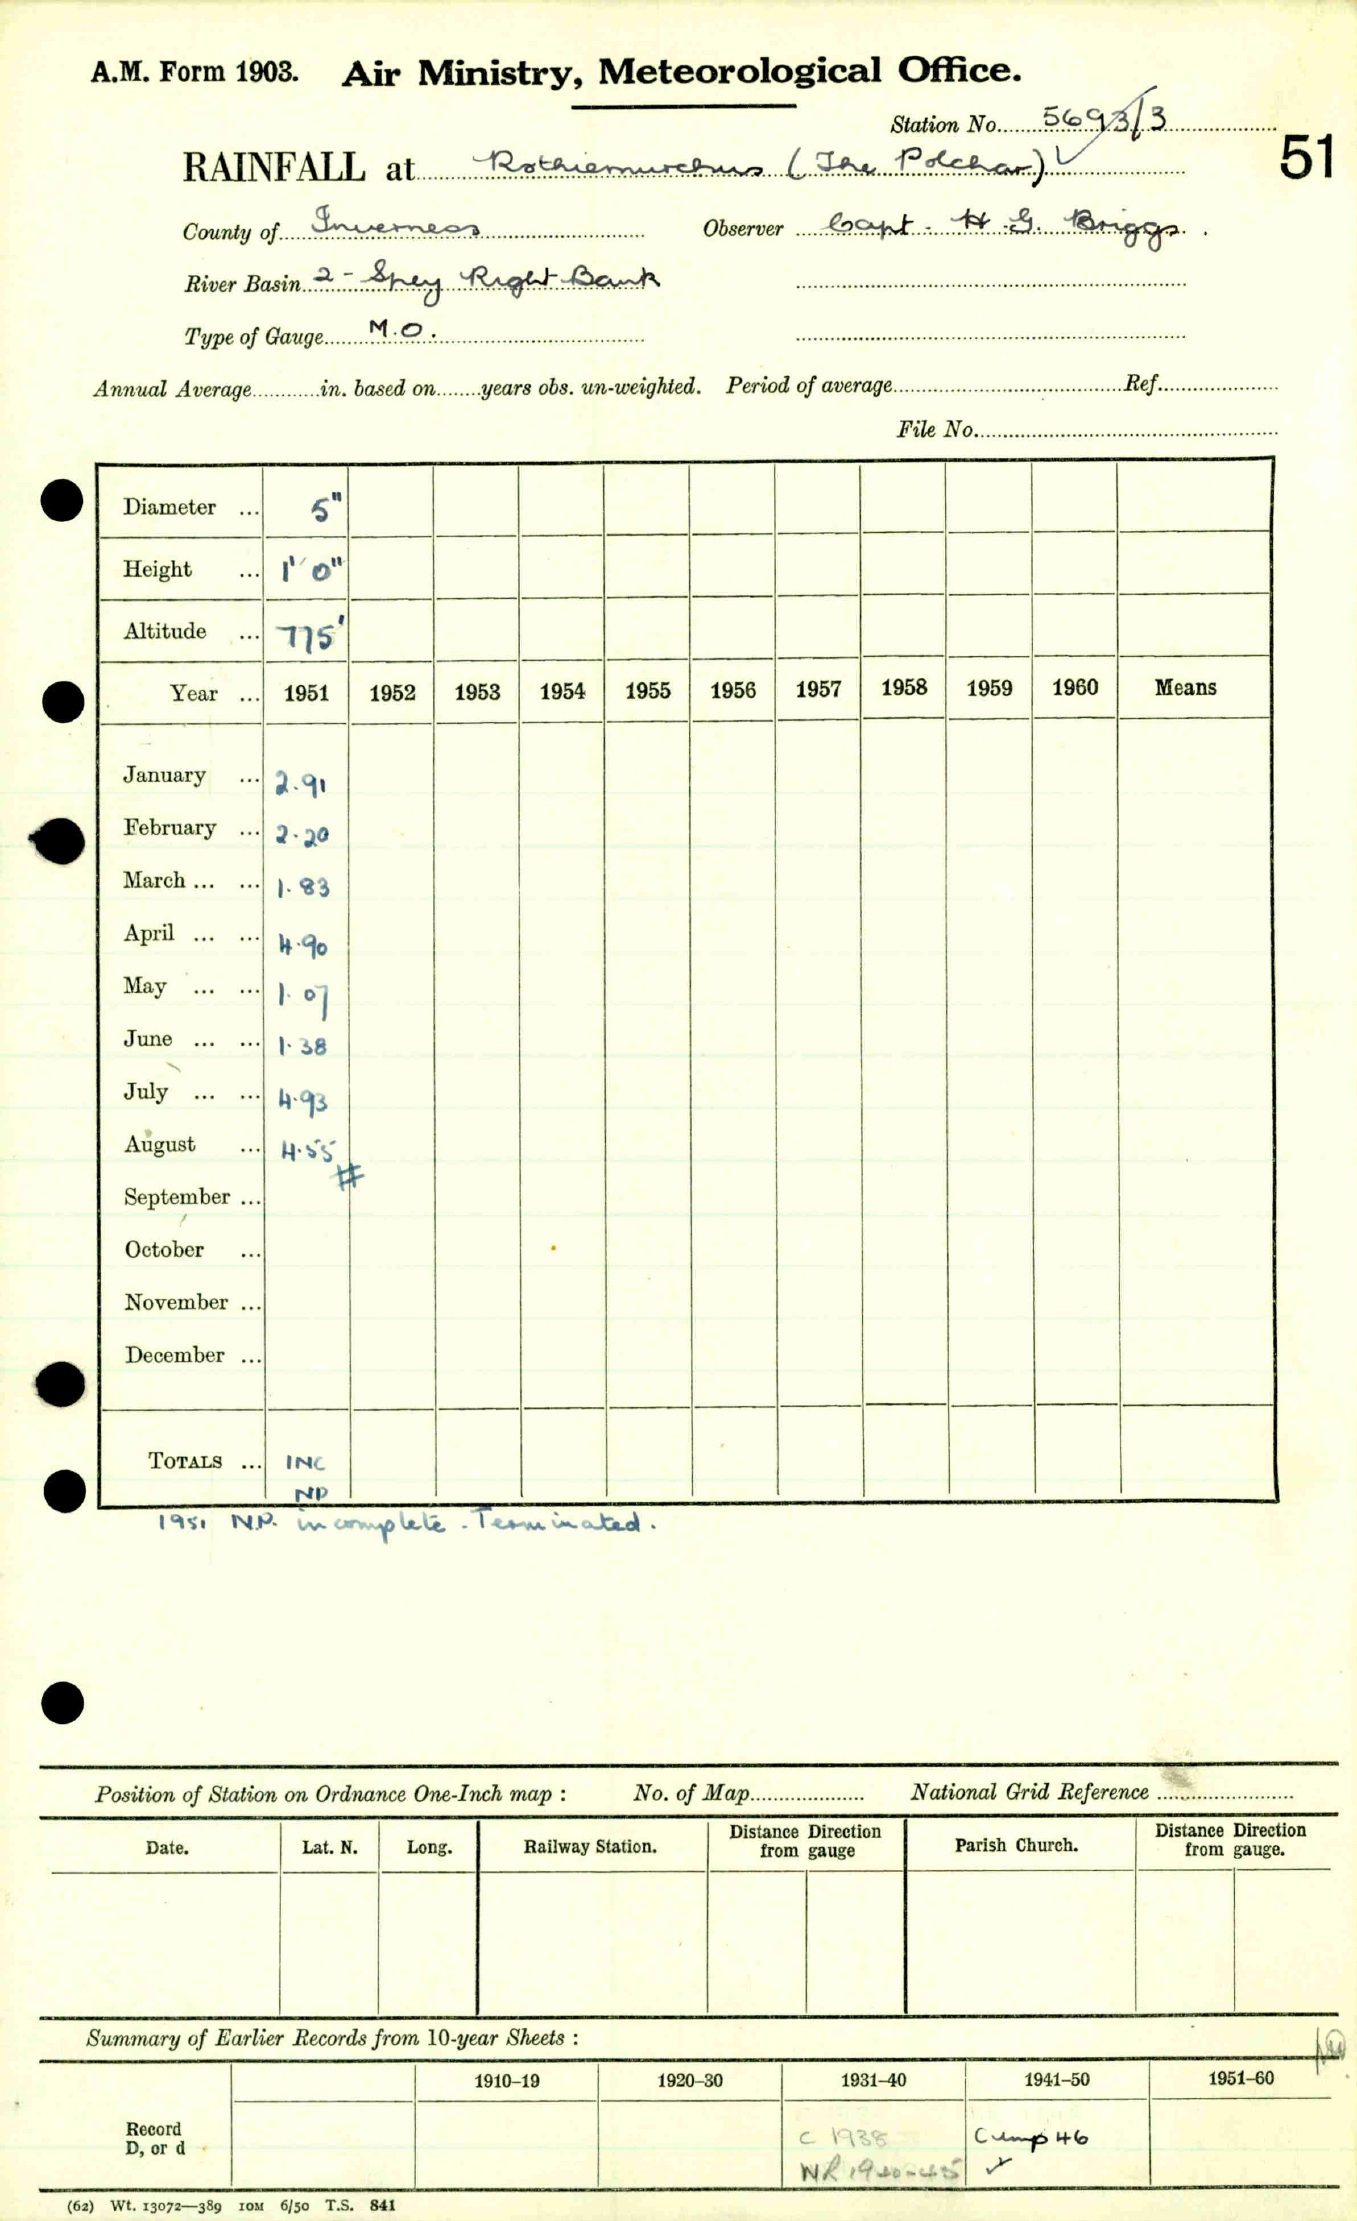 A.M. Form 1903. Air Ministry, Meteorological Office.
Station No. 5693/3
51
RAINFALL at Rothiemurchus (The Polchar) ✓
County of Inverness Observer Capt. H. G. Briggs.
River Basin 2 - Spey Right Bank
Type of Gauge M.O.
Annual Average in. based on years obs. un-weighted. Period of average Ref.
File No.
Diameter ... 5"
Height ... 1' 0"
Altitude ... 775'
Year ... 1951 1952 1953 1954 1955 1956 1957 1958 1959 1960 Means
January ... 2.91
February ... 2.20
March ... ... 1.83
April ... ... 4.90
May ... ... 1.07
June ... ... 1.38
July ... ... 4.93
August ... 4.55
#
September ...
October ...
November ...
December ...
TOTALS ... INC
NP
1951 N.P. incomplete. Terminated.
Position of Station on Ordnance One-Inch map : No. of Map National Grid Reference
Date. Lat. N. Long. Railway Station. Distance Direction from gauge Parish Church. Distance Direction from gauge.
Summary of Earlier Records from 10-year Sheets :
1910–19 1920–30 1931–40 1941–50 1951–60
Record
D, or d
C 1938 Cump 46
NR 1940-45 ✓
(62) Wt. 13072—389 10M 6/50 T.S. 841